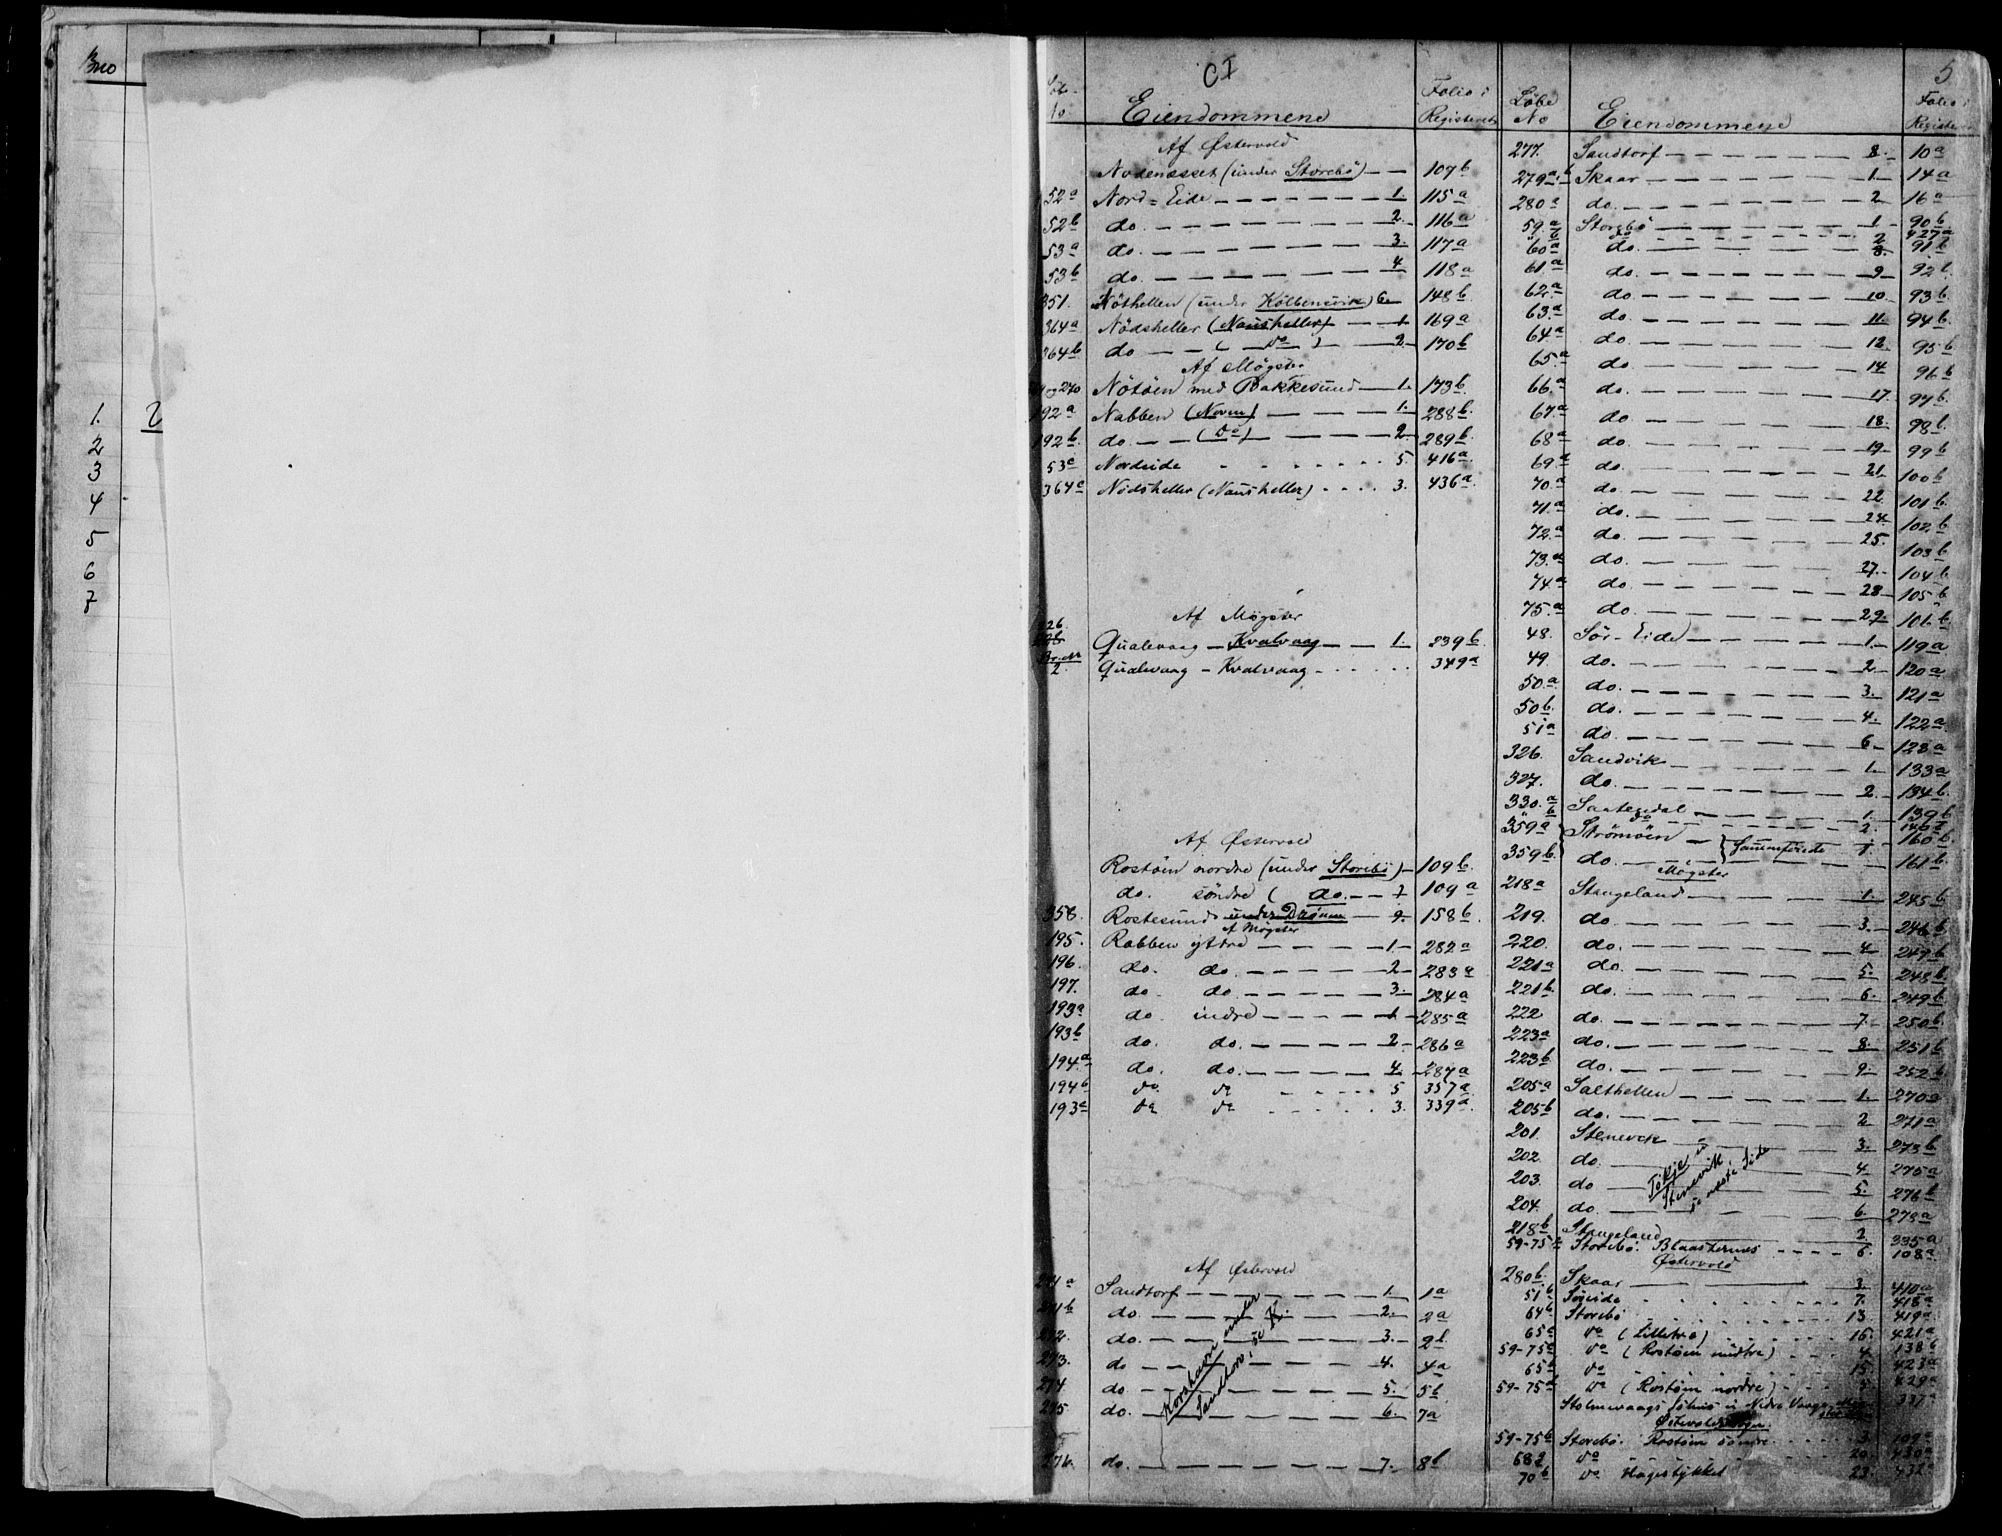 Bno
1.
2
3
4
5
6
7
C I
5
Eiendommene
Folio i Registeret
Af Østervold
Nodenesset (under Storebö) — 107 b
52 a Nord=Eide — 1. 115 a
52 b do. — 2. 116 a
53 a do. — 3. 117 a
53 b do. — 4 118 a
351. Nöthellen (under Kolbensvik) 6 — 148 b
364 a Nödsheller (Nausheller) — 1 169 a
364 b do — (do) — 2. 170 b
Af Møgster
270 Nötöen med Bakkesund — 1. 173 b
192 a Nabben (Noven) — 1. 288 b.
192 b. do. — (do) — 2 289 b.
53 c Nordeide 5. 416 a
364 c Nödsheller (Nausheller) 3. 436 a
Af Møgster
226
Qualevaag — Kvalvaag — 1. 239 b
2. Qualevaag — Kvalvaag 349 a
Af Østervold
Rostöen nordre (under Storebö) — 109 b.
do. söndre (do. — ) 109 a
358. Rostesund under Drönen — 9. 158 b.
af Møgster
195. Rabben ytdre — 1 — 282 a
196. do. do. — 2 — 283 a
197. do. do. — 3. 284 a
193 a do. indre — 1 — 285 a
193 b do. do. — 2 — 286 a
194 a do. do. — 4 — 287 a
194 b do do 5 357 a
193 c do do 3. 339 a.
Af Østervold
271 a Sandtorf — 1. 1 a
271 b do. — 2. 2 a
272. do. — 3. 2 b
273. do — 4. 4 a
274 do — 5. 5 b
275 do. — 6. 7 a
Korshavn under Sandtorv, se K.
276. do. — 7. 8 b
Löbe No
Eiendommene
Folio i Register
277. Sandtorf — 8. 10 a
279 a.b Skaar — 1. 14 a
280 a do. — 2 16 a
59 a Storebö — 1. 90 b
do 2 427 a
60 a do. — 8. 91 b
61 a do. — 9 92 b.
62 a do — 10. 93 b.
63 a do — 11. 94 b.
64 a do. — 12 95 b
65 a do — 14 96 b
66 a do. — 17 97 b.
67 a do — 18. 98 b.
68 a do — 19 99 b
69 a do. — 21 100 b
70 a do — 22. 101 b.
71 a do. — 24 102 b
72 a do. — 25. 103 b
73 a do. — 27. 104 b
74 a do. — 28 105 b
75 a do. — 29 106 b.
48. Sör-Eide — 1. 119 a
49 do. — 2 120 a
50 a. do. — 3. 121 a
50 b. do. — 4. 122 a.
51 a do. — 6. 128 a
326. Sandvik — 1. 133 a
327. do. — 2. 134 b.
330. a Saatendal — 1. 139 b
b do 2. 140 a
359 a Strömöen — } Sammenföiede 1 160 b.
359 b. do. — 161 b.
Møgster
218 a Stangeland — 1. 245 b
219. do — 3. 246 b
220. do. — 4 247 b
221 a do. — 5. 248 b.
221 b. do. — 6. 249 b.
222 do. — 7. 250 b.
223 a do. — 8. 251 b.
223 b. do. — 9. 252 b
205 a Salthellen — 1. 270 a
205 b do. — 2 271 a
201. Stenevik — 3. 273 b
202. do. — 4. 275 a
203. do — 5. 276 b
204. do. — 6. 278 a
Tokje i Stenevik se næste Side
218 b Stangeland 2. 335 a
59-75 Storebö. Blaasternes 6. 108 a
Østervold
280 b. Skaar — 3. 410 a
51 b Söreide 7. 418 a
64 b Storebö 13 419 a
65 c do (Lilletræ) 16 421 a
59-75 a do (Rostöen midtre) 4 138 b
65 b do 15 423 a
59-75 do (Rostöen nordre) 429 a
Stolmevaags i Nedre Vaage 337 a
59-75 b Storebö. Rostöen söndre 3. 109 a
68 do 20. 430 a
70 b do Hagestykket 23. 432 a